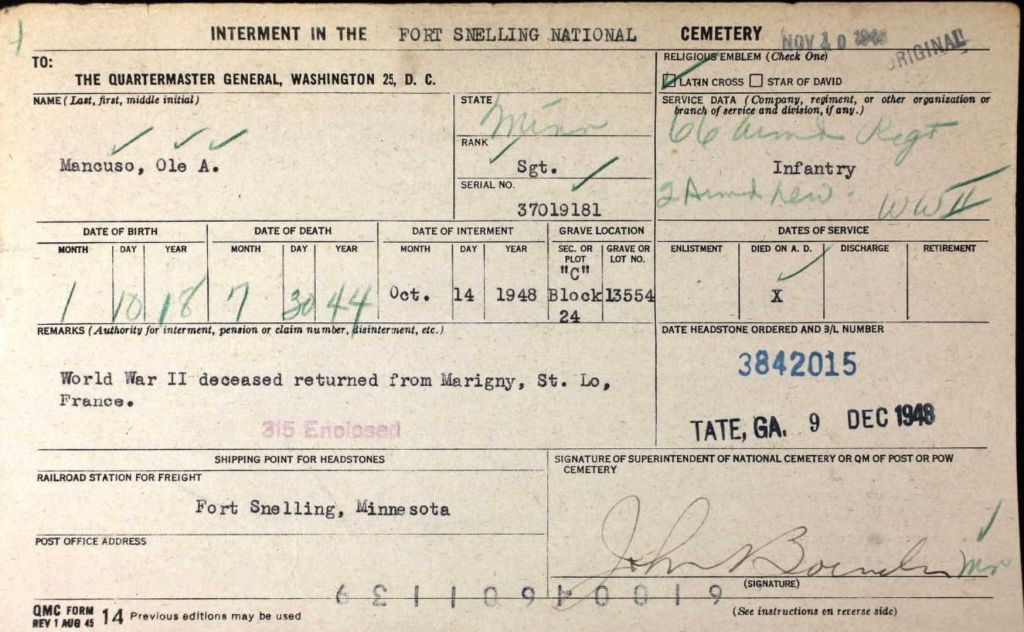 4
INTERMENT IN THE FORT SNELLING NATIONAL CEMETERY
NOV 10 1948
ORIGINAL
TO:
THE QUARTERMASTER GENERAL, WASHINGTON 25, D. C.
RELIGIOUS EMBLEM (Check One)
LATIN CROSS STAR OF DAVID
NAME (Last, first, middle initial)
Mancuso, Ole A.
STATE
Minn
RANK
Sgt.
SERIAL NO.
37019181
SERVICE DATA (Company, regiment, or other organization or
branch of service and division, if any.)
66 Armd Regt
Infantry
2 Armd
WW II
DATE OF BIRTH
MONTH DAY YEAR
1 10 18
DATE OF DEATH
MONTH DAY YEAR
7 30 44
DATE OF INTERMENT
MONTH DAY YEAR
Oct. 14 1948
GRAVE LOCATION
SEC. OR PLOT
GRAVE OR LOT NO.
"C"
Block 13554
24
DATES OF SERVICE
ENLISTMENT DIED ON A. D. DISCHARGE RETIREMENT
X
REMARKS (Authority for interment, pension or claim number, disinterment, etc.)
World War II deceased returned from Marigny, St. Lo,
France.
315 Enclosed
DATE HEADSTONE ORDERED AND B/L NUMBER
3842015
TATE, GA. 9 DEC 1948
SHIPPING POINT FOR HEADSTONES
RAILROAD STATION FOR FREIGHT
Fort Snelling, Minnesota
POST OFFICE ADDRESS
SIGNATURE OF SUPERINTENDENT OF NATIONAL CEMETERY OR QM OF POST OR POW
CEMETERY
John
(SIGNATURE)
QMC FORM
REV 1 AUG 45 14 Previous editions may be used
(See instructions on reverse side)